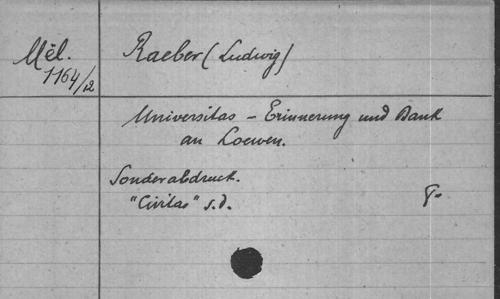 Mél.
1164/12
Raeber (Ludwig)
Universitas - Erinnerung und Dank
an Loewen.
Sonderabdruck.
"Civitas" s.d.
8°